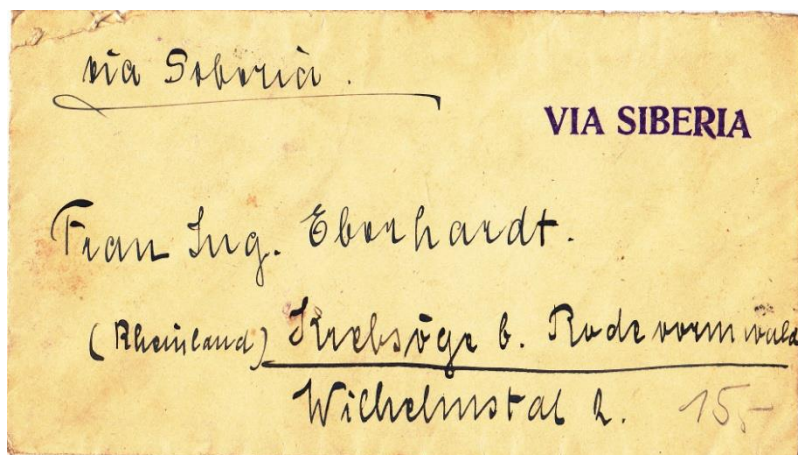 via Soberia.
VIA SIBERIA
Frau Ing. Eberhardt.
(Rheinland) Krebsöge b. Rade vorm wald
Wilhelmstal 2.
15,-